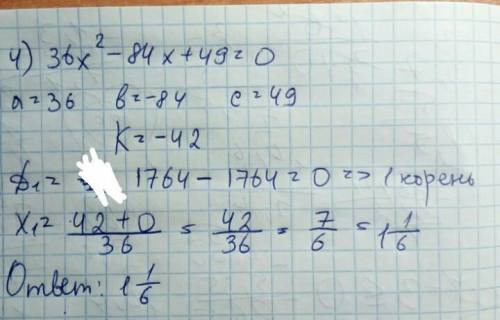 4) 36x² - 84x + 49 = 0
a = 36 в = -84 c = 49
K = -42
D₁ = 1764 - 1764 = 0 => 1 корень
X₁ = (42 + 0)/36 = 42/36 = 7/6 = 1 1/6
Ответ: 1 1/6